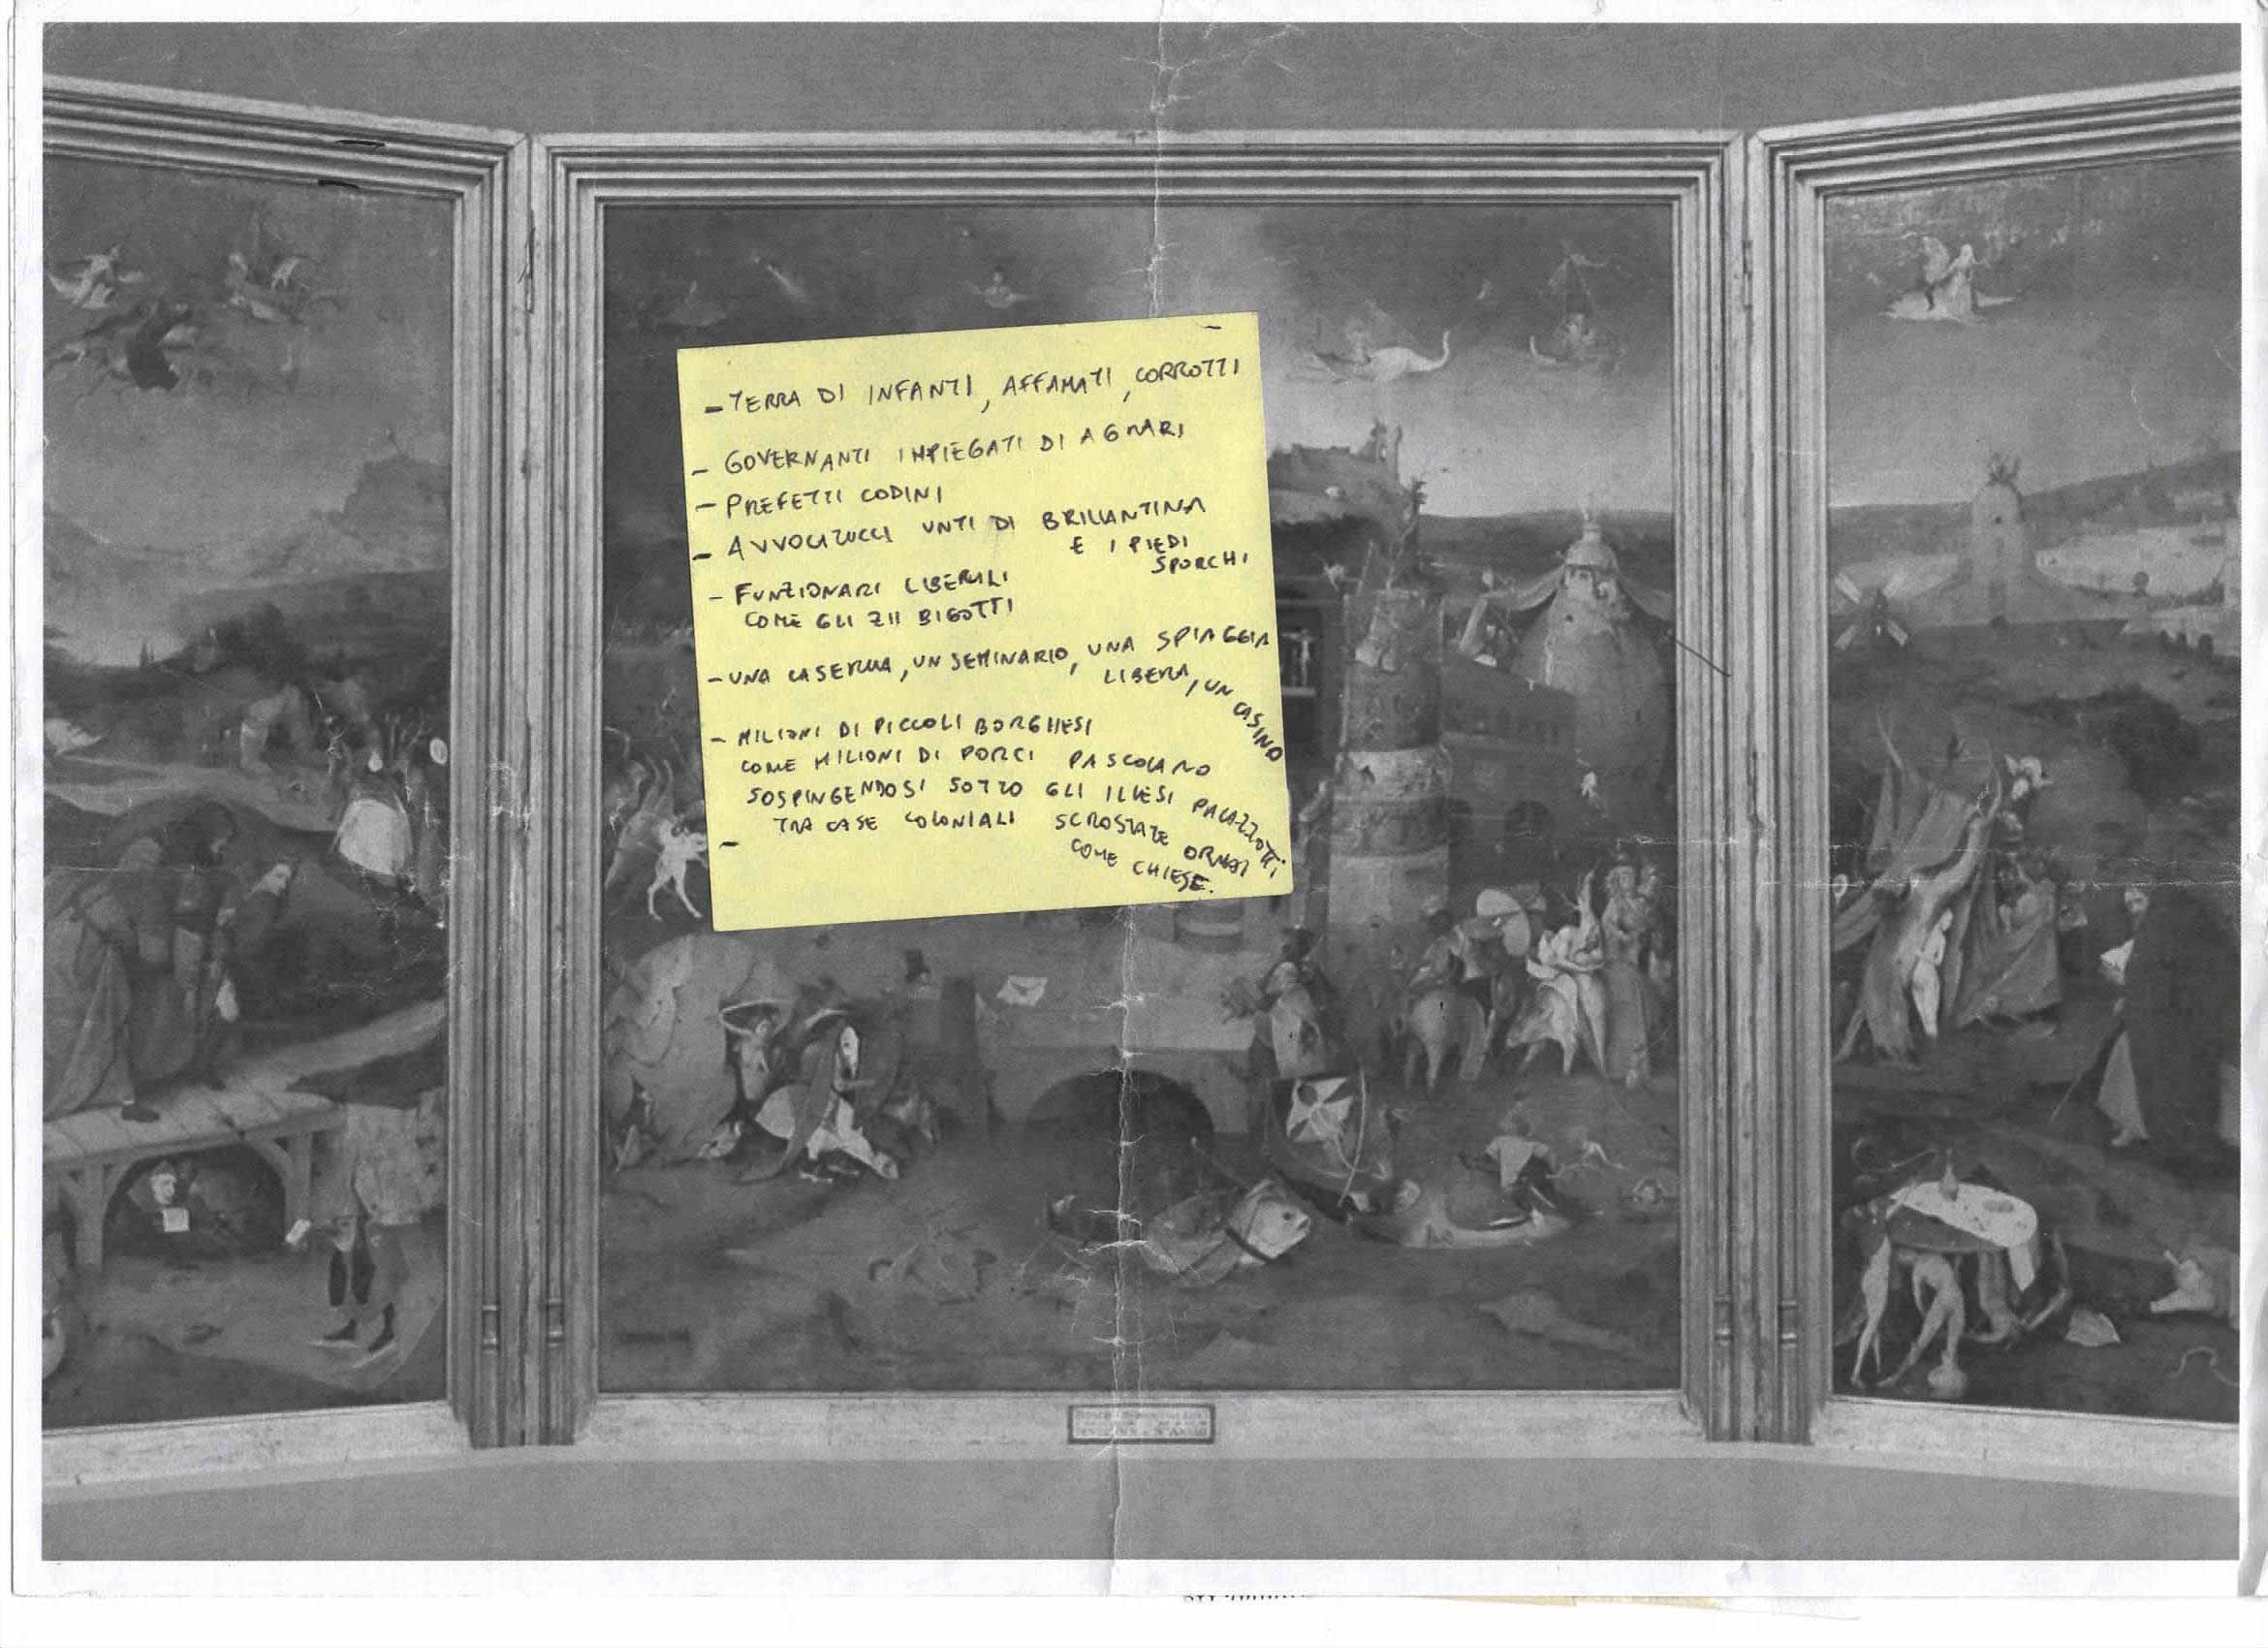 - TERRA DI INFANTI, AFFAMATI, CORROTTI
- GOVERNANTI IMPIEGATI DI AGRARI
- PREFETTI CODINI
- AVVOCATUCCI UNTI DI BRILLANTINA
E I PIEDI
SPORCHI
- FUNZIONARI LIBERALI
COME GLI ZII BIGOTTI
- UNA CASERMA, UN SEMINARIO, UNA SPIAGGIA
LIBERA, UN CASINO
- MILIONI DI PICCOLI BORGHESI
COME MILIONI DI PORCI PASCOLANO
SOSPINGENDOSI SOTTO GLI ILLESI PALAZZOTTI,
TRA CASE COLONIALI SCROSTATE ORMAI
COME CHIESE.
-